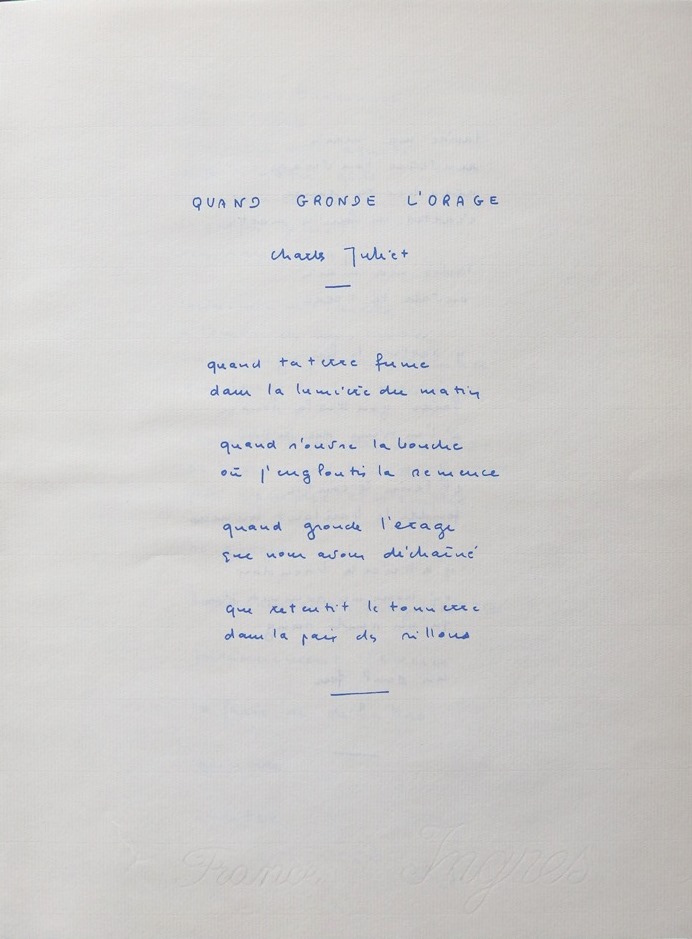 QUAND GRONDE L'ORAGE
Charles Juliet
quand ta terre fume
dans la lumière du matin
quand s'ouvre la bouche
où j'engloutis la semence
quand gronde l'orage
que nous avons déchaîné
que retentit le tonnerre
dans la paix des sillons
France Ingres